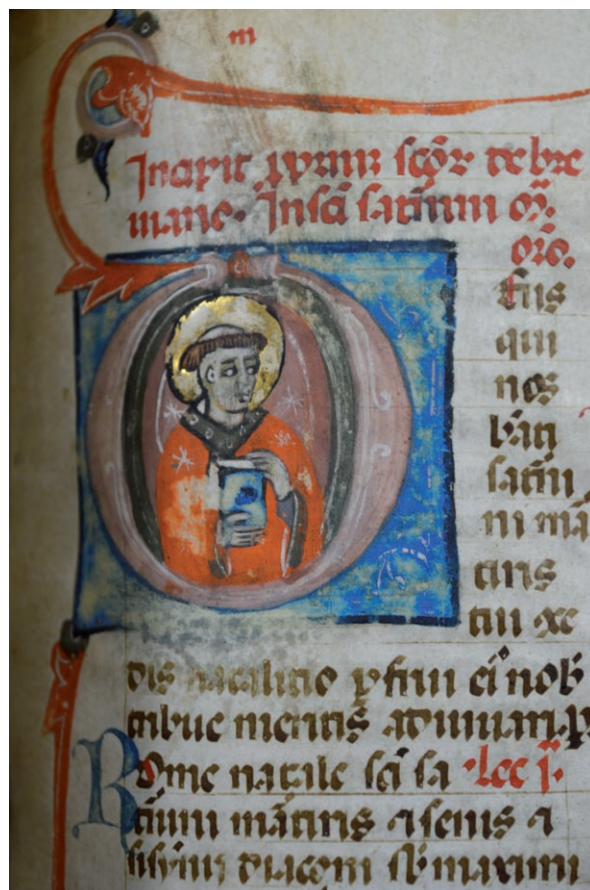 m
Incipit ꝓpriū scōꝝ de bre
uiario. In scī saturnini m̄.
orō.
eus
qui
nos
bāti
saturni
ni mā
tiris
tui ꝯce
dis natalitio ꝑfrui ei nob̄
tribue meritis adiuuari ꝑ
Rome natale scī sa lec̄ j.
turnini mātiris ⁊ senis ⁊
sisynnij diaconi sb̄ maximi